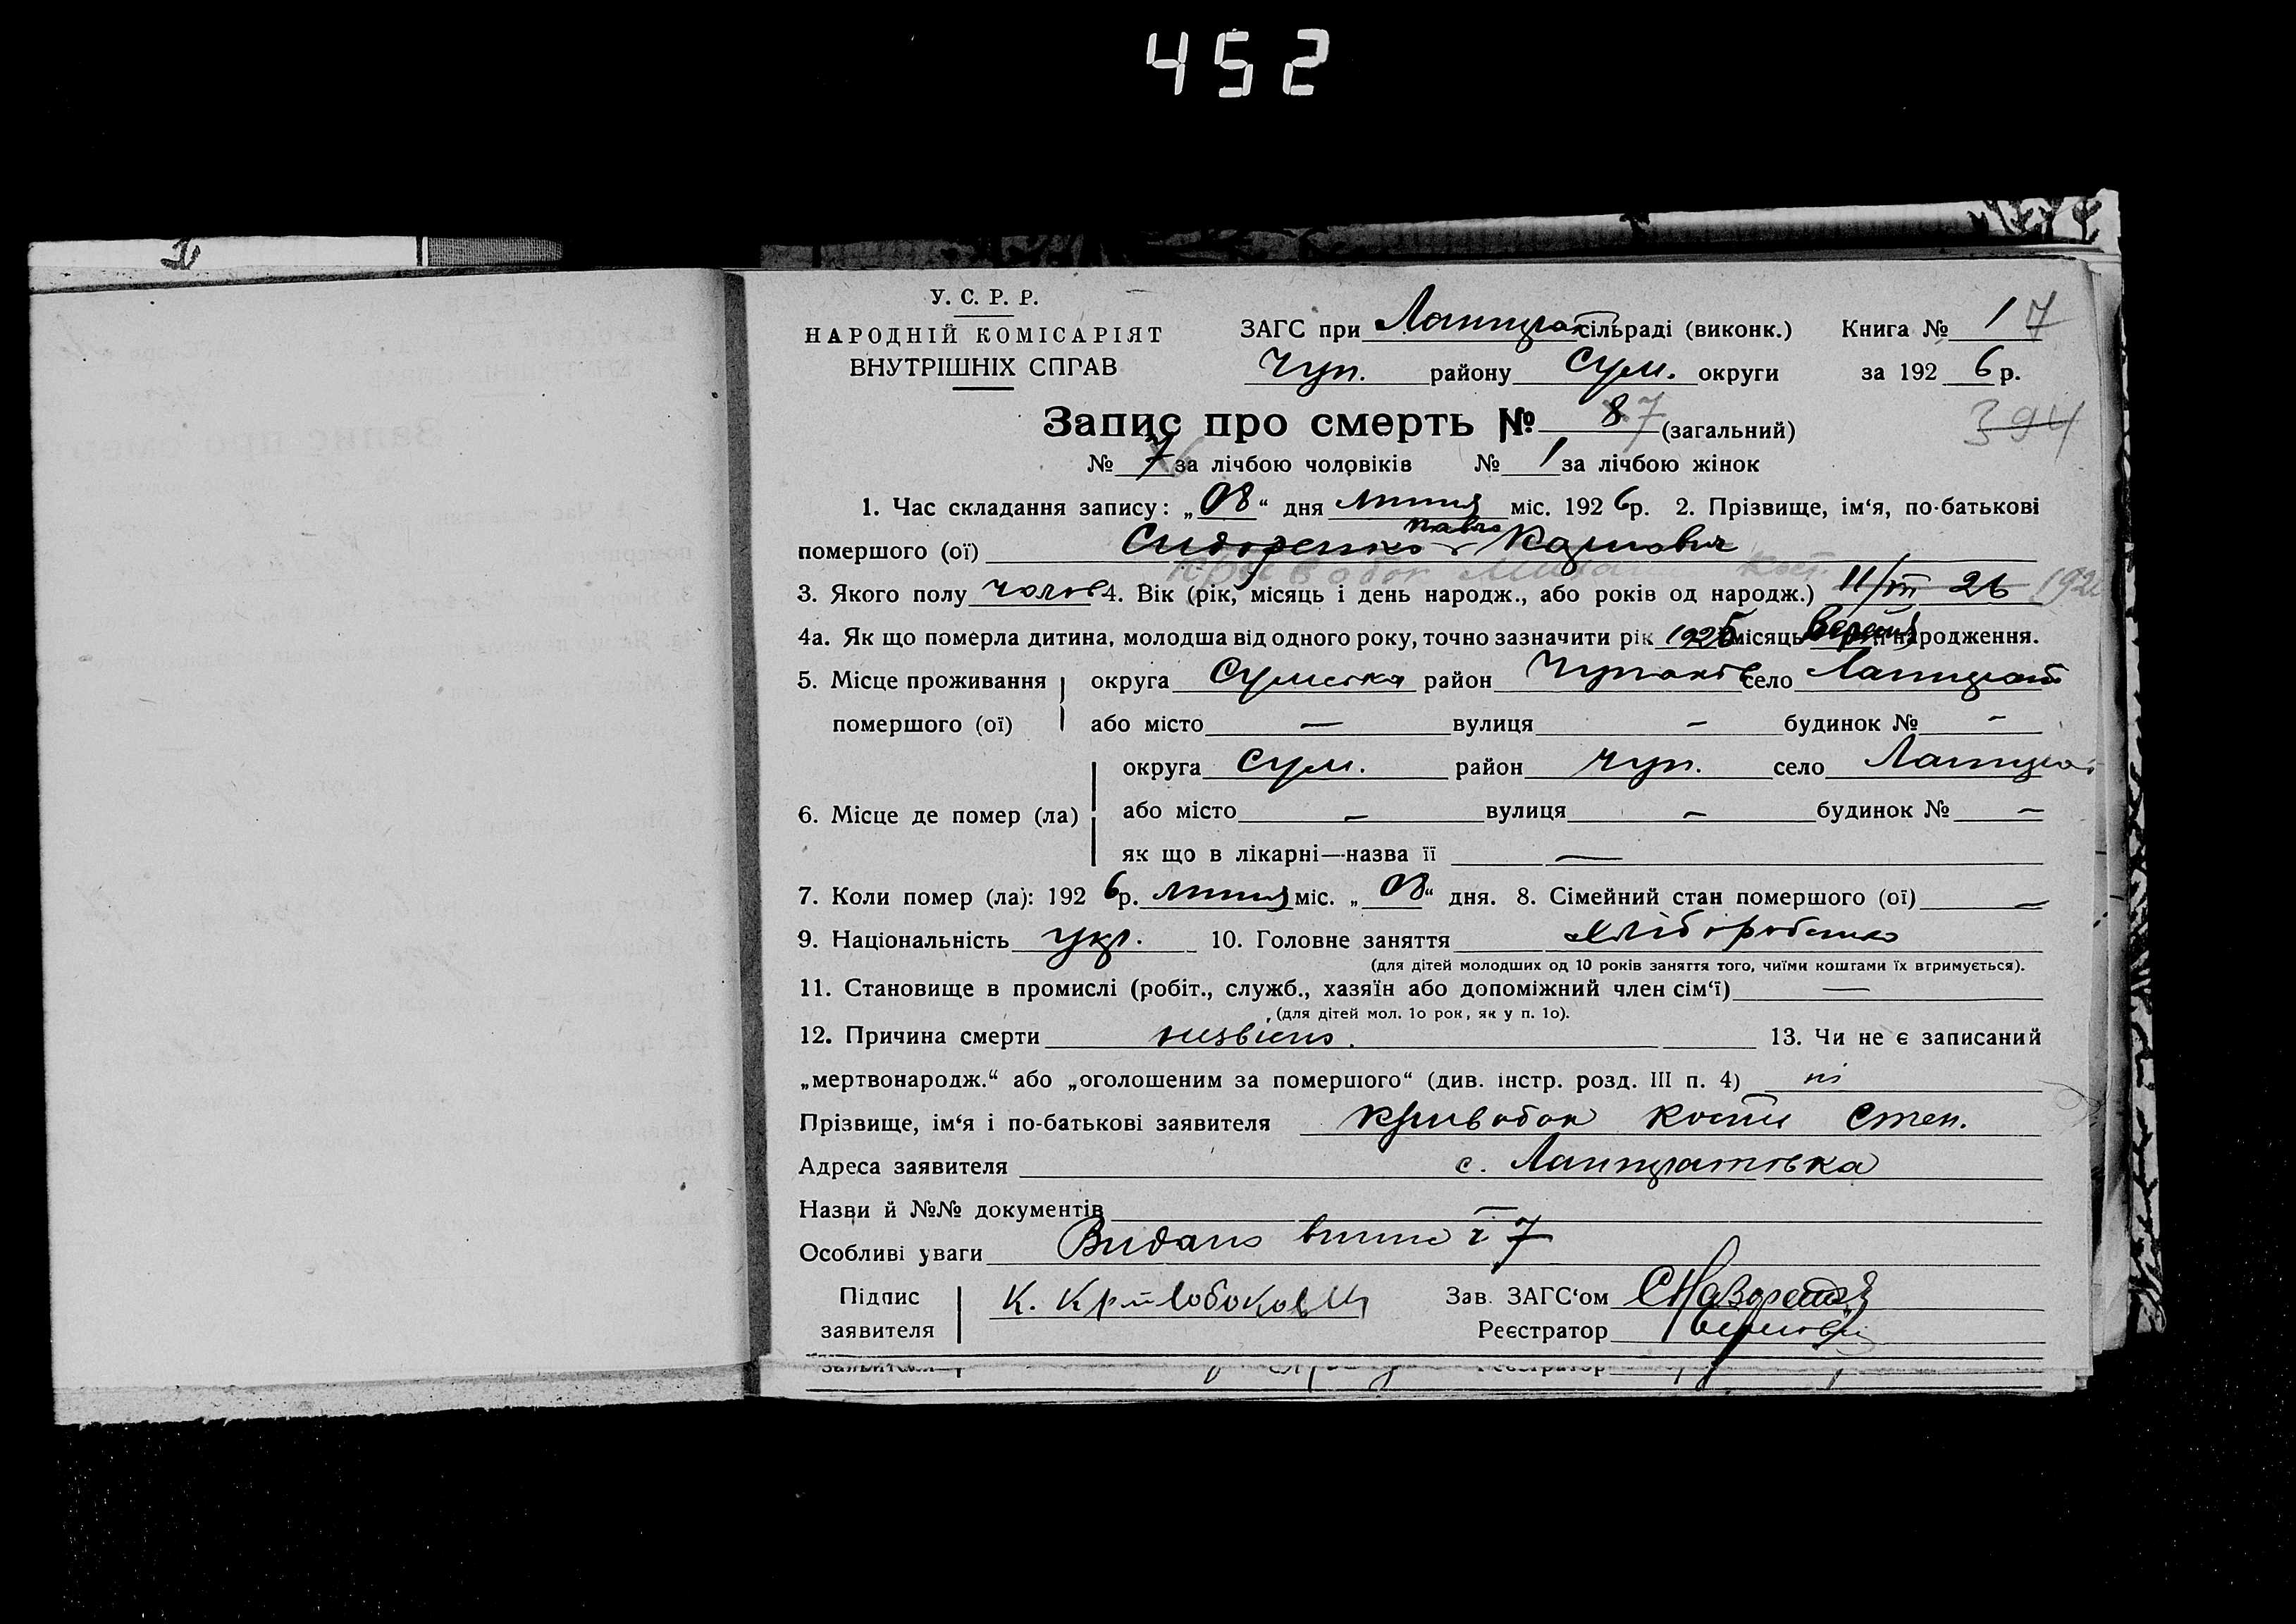 452
У. С. Р. Р.
НАРОДНІЙ КОМІСАРІЯТ
ВНУТРІШНІХ СПРАВ
ЗАГС при сільраді (виконк.) Книга № 17
Чуп. району Сум. округи за 192 6 р.
Запис про смерть № 8 7 (загальний) 394
№ 7 за лічбою чоловіків № 1 за лічбою жінок
1. Час складання запису: „08“ дня липня міс. 192 6 р. 2. Прізвище, ім‘я, по-батькові
Павло
помершого (ої) Сидоренко
3. Якого полу чолов 4. Вік (рік, місяць і день народж., або років од народж.) 11/III 26
4а. Як що померла дитина, молодша від одного року, точно зазначити рік місяць народження.
5. Місце проживання округа Сумська район село
помершого (ої) або місто — вулиця – будинок № –
округа Сум. район Чуп. село
6. Місце де помер (ла) або місто – вулиця – будинок № –
як що в лікарні—назва її —
7. Коли помер (ла): 192 6 р. липня міс. „08“ дня. 8. Сімейний стан помершого (ої) –
9. Національність укр. 10. Головне заняття
(для дітей молодших од 10 років заняття того, чиїми коштами їх втримується).
11. Становище в промислі (робіт., служб., хазяїн або допоміжний член сім‘ї) —
(для дітей мол. 1о рок, як у п. 1о).
12. Причина смерти 13. Чи не є записаний
„мертвонародж.“ або „оголошеним за помершого“ (див. інстр. розд. III п. 4) ні
Прізвище, ім‘я і по-батькові заявителя Кривобок Кости Степ.
Адреса заявителя с.
Назви й №№ документів —
Особливі уваги Видано 7
Підпис
заявителя К.
Зав. ЗАГС‘ом
Реєстратор